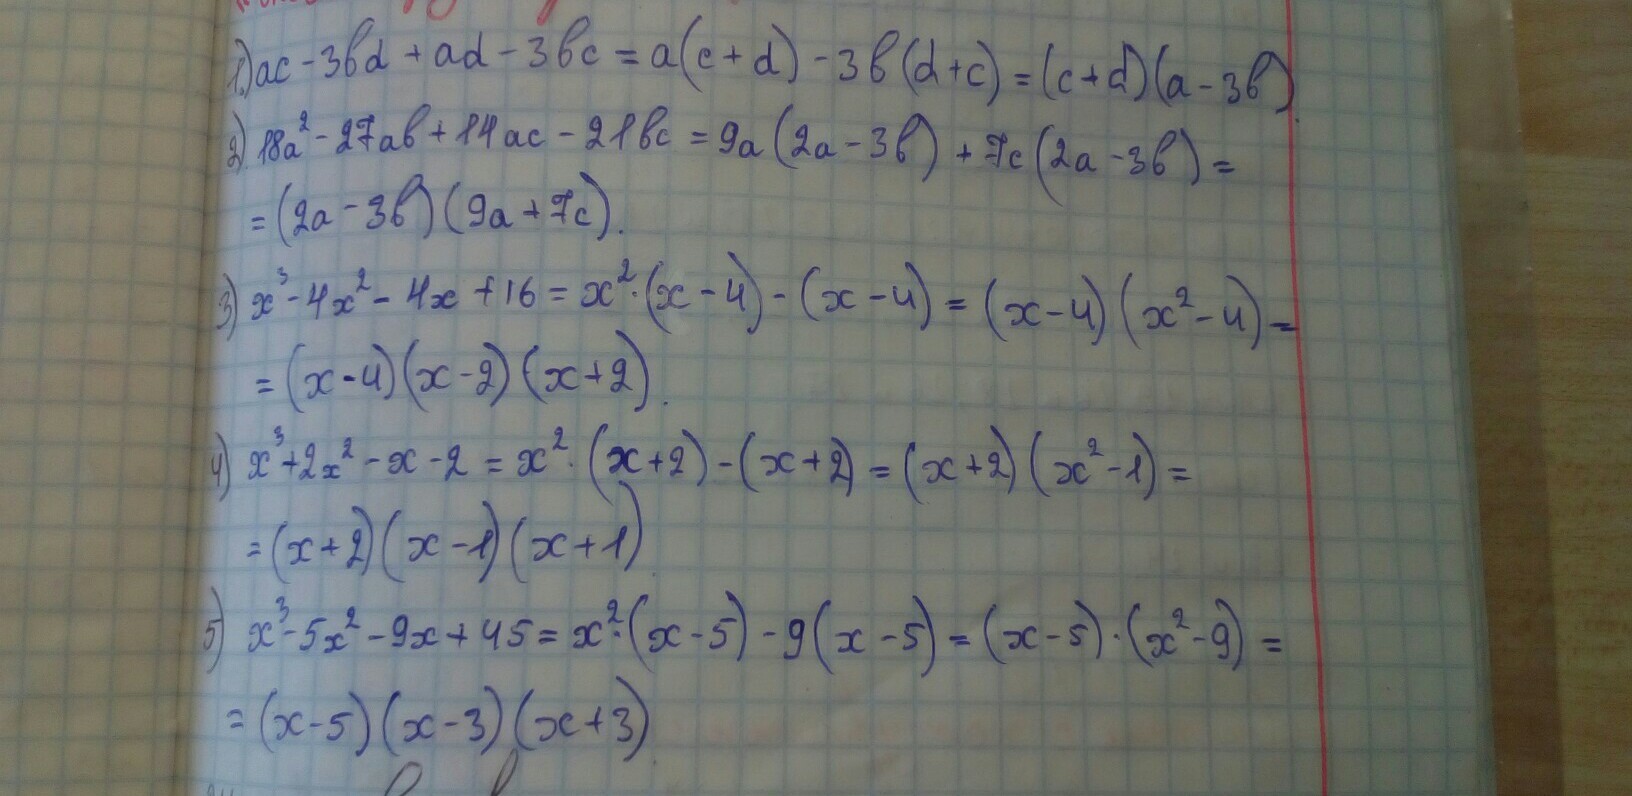 1) ac - 3bd + ad - 3bc = a(c + d) - 3b(d + c) = (c + d)(a - 3b).
2) 18a² - 27ab + 14ac - 21bc = 9a(2a - 3b) + 7c(2a - 3b) =
= (2a - 3b)(9a + 7c).
3) x³ - 4x² - 4x + 16 = x²·(x - 4) - (x - 4) = (x - 4)(x² - 4) =
= (x - 4)(x - 2)(x + 2).
4) x³ + 2x² - x - 2 = x²·(x + 2) - (x + 2) = (x + 2)(x² - 1) =
= (x + 2)(x - 1)(x + 1).
5) x³ - 5x² - 9x + 45 = x²·(x - 5) - 9(x - 5) = (x - 5)·(x² - 9) =
= (x - 5)(x - 3)(x + 3)